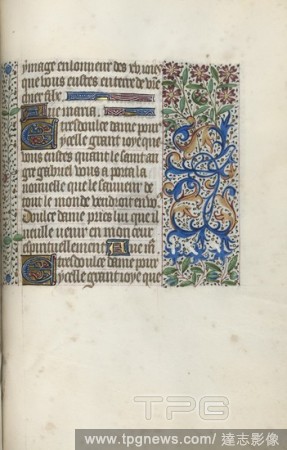 ymage en lonneur des xv. ioies
que vous eustes en terre de vre
chier filx
Aue maria.
E tresdoulce dame pour
ycelle grant ioye que
vous eustes quant le saint an
gre gabriel vous aporta la
nouuelle que le sauueur de
tout le monde vendroit en vo9
doulce dame pries lui que il
vueille venir en mon cuer
espirituellement Aue m̃
E tresdoulce dame pour
ycelle grant ioye que
TPG
www.tpgnews.com/ 達志影像